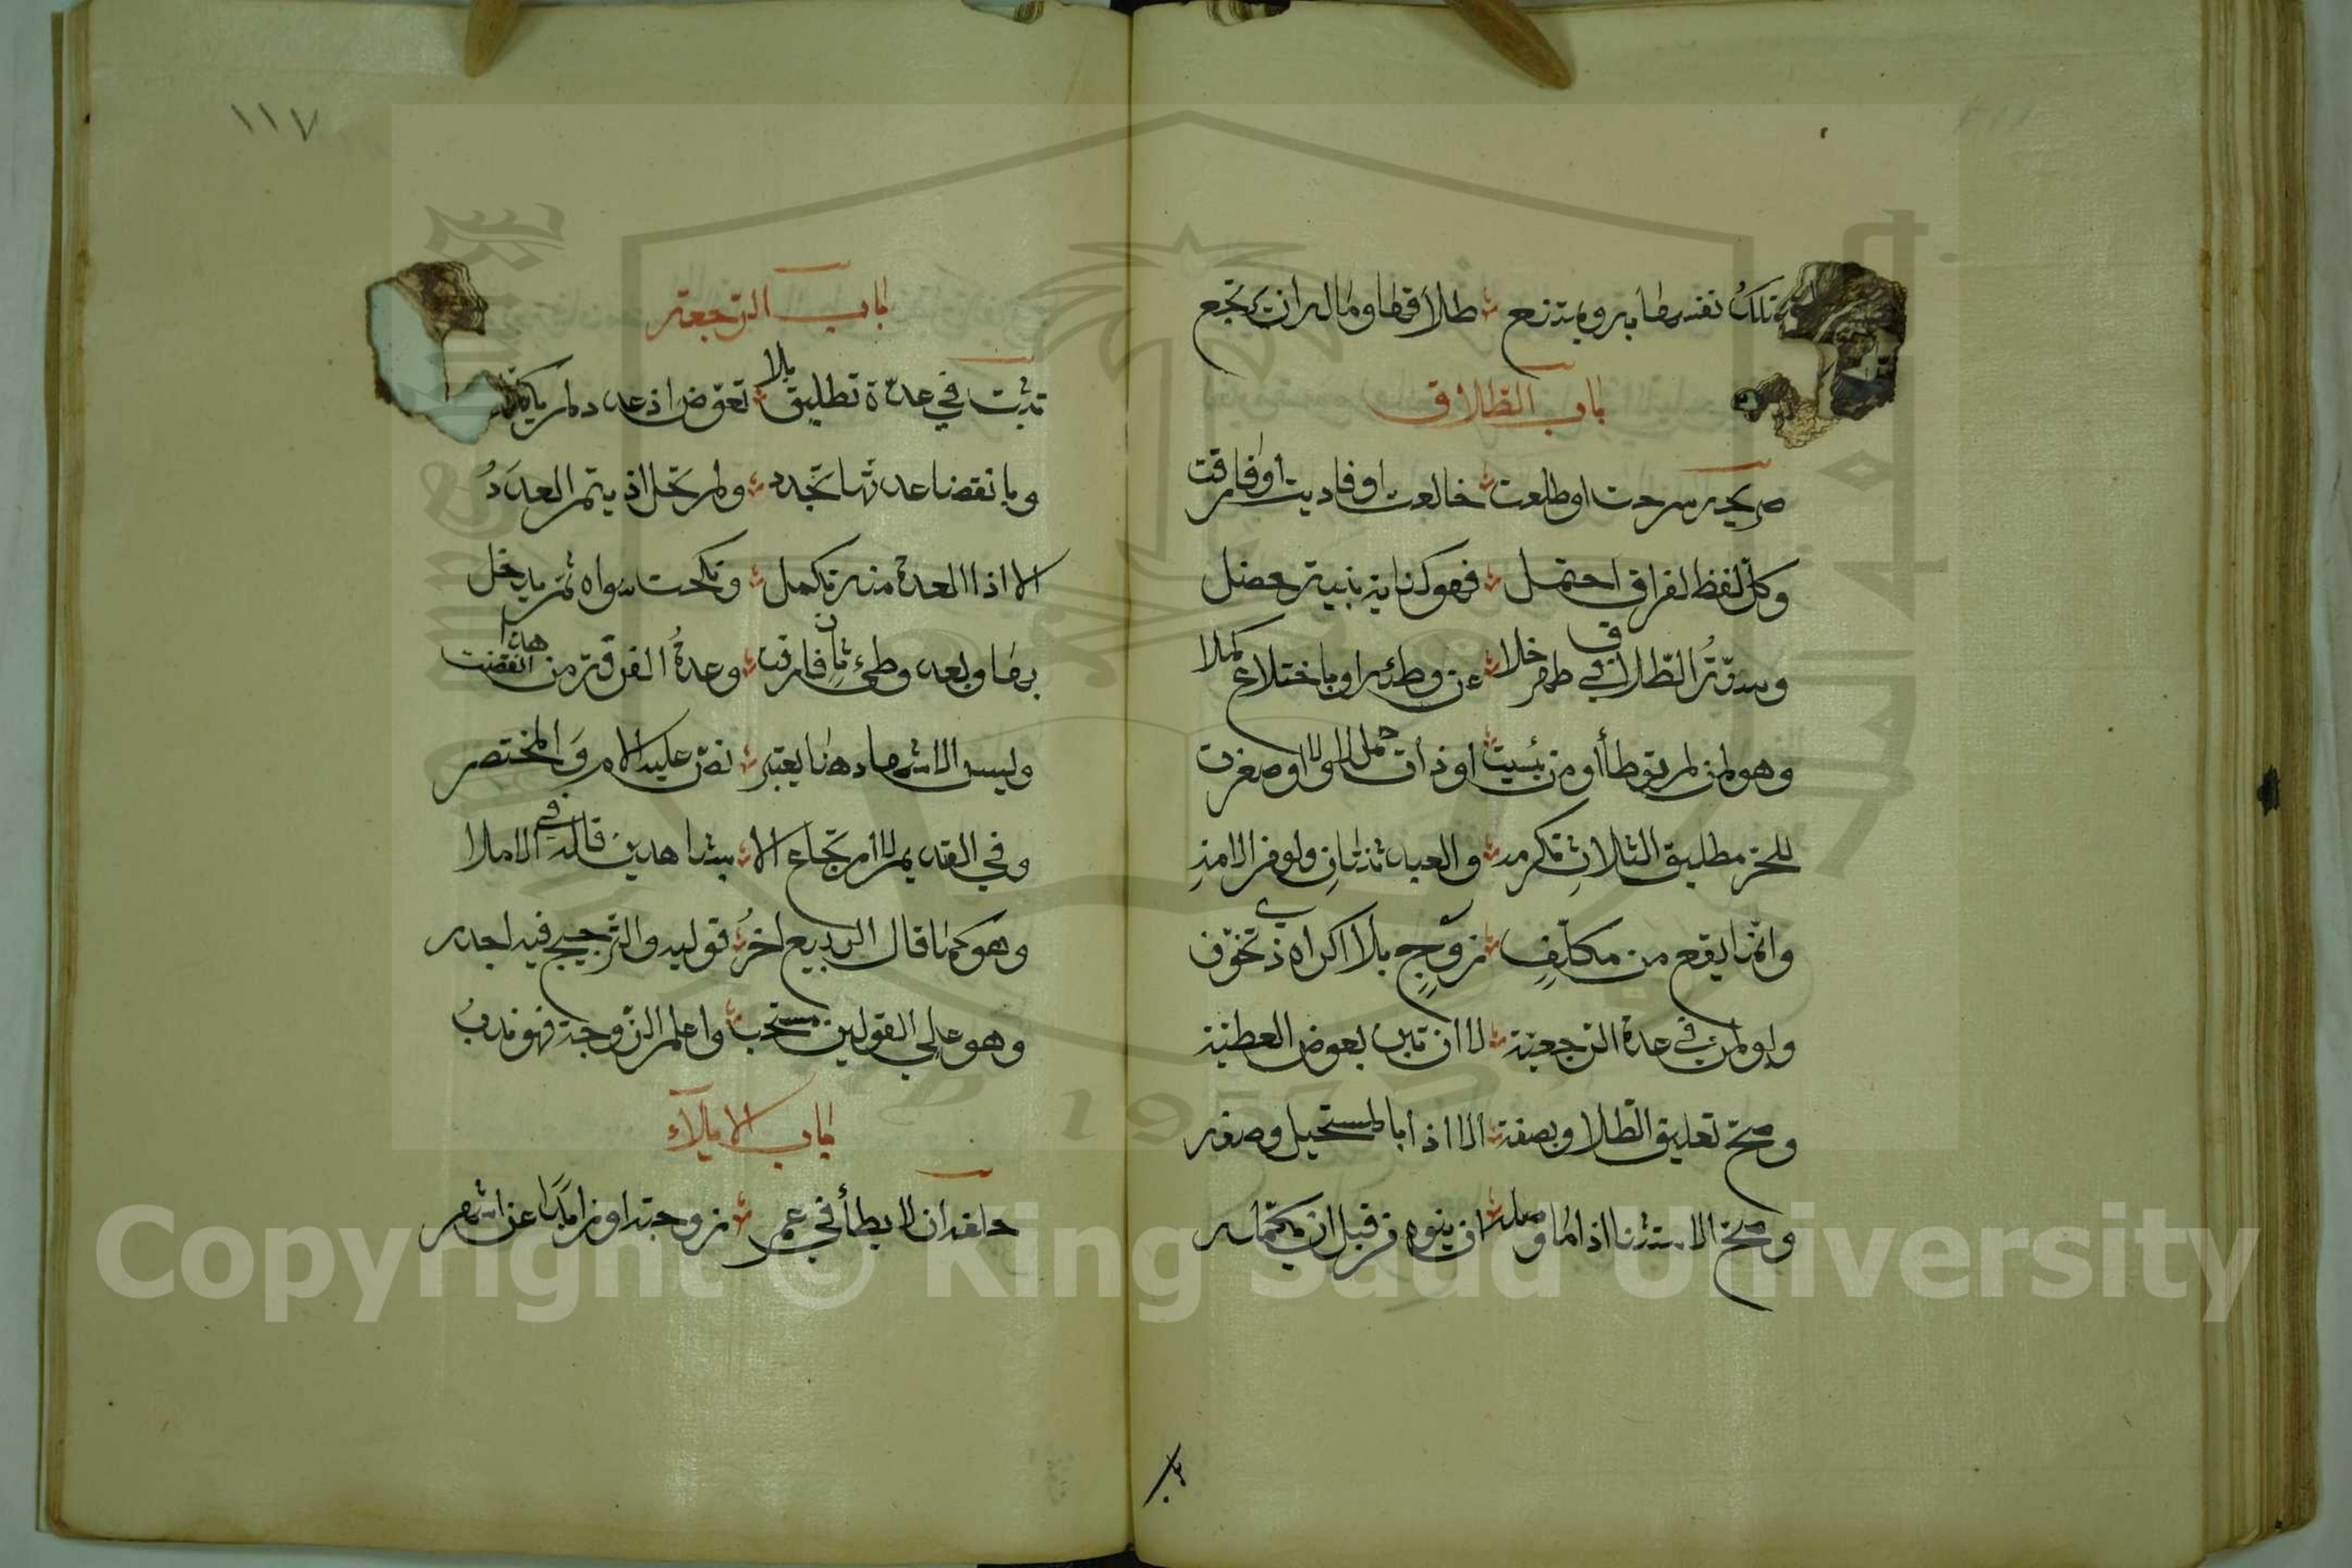 تملك نفسها به ويمتنع ۞ طلاقها وماله ان يرتجع
باب الطلاق
صريحه سرحت او طلقت ۞ خالعت او فاديت او فارقت
وكل لفظ لفراق احتمل ۞ فهو كناية بنية حصل
وسنة الطلاق في طهر خلا ۞ عن وطئه او باختلاع كملا
وهو لمن لم توطأ او من يئست ۞ او ذات حمل لا ولا او صغرت
للحر مطليق الثلاث تكرمه ۞ والعبد ثنتان ولو في الامة
وانما يقع من مكلف ۞ زوج بلا اكراه ذي تخوف
ولو لمن في عدة الرجعية ۞ لا ان تبن بعوض العطية
وصح تعليق الطلاق بصفة ۞ الا اذا بالمستحيل وصفه
وصح الاستثنا اذا ما وصله ۞ ان ينوه من قبل ان يكمله
١١٧
باب الرجعة
تثبت في عدة تطليق بلا ۞ تعوض اذ عدد لم يكملا
وبانقضا عدتها تجدد ۞ ولم تحل اذ يتم العدد
الا اذا العدة منه تكمل ۞ ونكحت سواه ثم يدخل
بها وبعد وطئ ثان فارقت ۞ وعدة الفرقة من هذا انقضت
وليس الاشهاد هنا يعتبر ۞ نص عليه الام والمختصر
وفي القديم لا ارتجاع الا ۞ بشاهدين قاله في الاملا
وهو كما قال الربيع اخر ۞ قوليه والترجيح فيه اجدر
وهو على القولين مستحب ۞ واعلم الزوجة فهو ندب
باب الايلاء
حلفه ان لا يطأ في عمر ۞ زوجته او زايدا عن اشهر
Copyright © King Saud University
1957